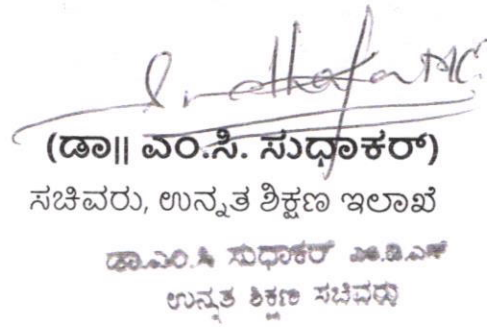 Sudhakar MC
(ಡಾ|| ಎಂ.ಸಿ. ಸುಧಾಕರ್)
ಸಚಿವರು, ಉನ್ನತ ಶಿಕ್ಷಣ ಇಲಾಖೆ
ಡಾ.ಎಂ.ಸಿ ಸುಧಾಕರ್ ಎಂ.ಡಿ.ಎಸ್
ಉನ್ನತ ಶಿಕ್ಷಣ ಸಚಿವರು